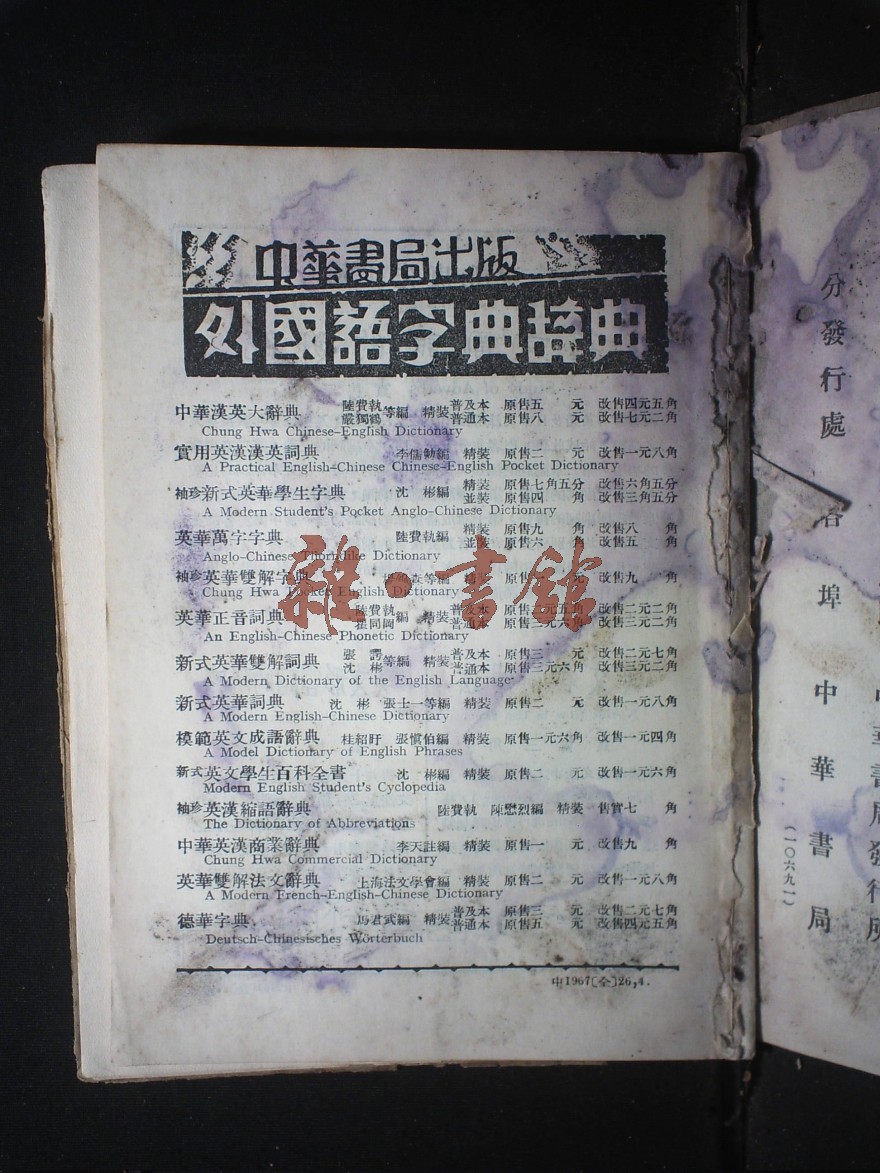 中華書局出版
外國語字典辞典
中華漢英大辭典 陸費執 嚴獨鶴 等編 精裝 普及本 原售五元 改售四元五角
普通本 原售八元 改售七元二角
Chung Hwa Chinese-English Dictionary
實用英漢漢英詞典 李儒勉編 精裝 原售二元 改售一元八角
A Practical English-Chinese Chinese-English Pocket Dictionary
袖珍新式英華學生字典 沈彬編 精裝 原售七角五分 改售六角五分
並裝 原售四角 改售三角五分
A Modern Student's Pocket Anglo-Chinese Dictionary
英華萬字字典 陸費執編 精裝 原售九角 改售八角
並裝 原售六角 改售五角
Anglo-Chinese Thorndike Dictionary
袖珍英華雙解字典 森等編 精裝 原售 元 改售九角
Chung Hwa Pocket English Dictionary
英華正音詞典 陸費執 瞿同岡 編 精裝 普及本 原售二元五角 改售二元二角
普通本 原售三元六角 改售三元二角
An English-Chinese Phonetic Dictionary
新式英華雙解詞典 張諤 沈彬 等編 精裝 普及本 原售三元 改售二元七角
普通本 原售三元六角 改售三元二角
A Modern Dictionary of the English Language
新式英華詞典 沈彬 張士一等編 精裝 原售二元 改售一元八角
A Modern English-Chinese Dictionary
模範英文成語辭典 桂紹盱 張愼伯編 精裝 原售一元六角 改售一元四角
A Model Dictionary of English Phrases
新式英文學生百科全書 沈彬編 精裝 原售二元 改售一元六角
Modern English Student's Cyclopedia
袖珍英漢縮語辭典 陸費執 陳懋烈編 精裝 售實七角
The Dictionary of Abbreviations
中華英漢商業辭典 李天註編 精裝 原售一元 改售九角
Chung Hwa Commercial Dictionary
英華雙解法文辭典 上海法文學會編 精裝 原售二元 改售一元八角
A Modern French-English-Chinese Dictionary
德華字典 馬君武編 精裝 普及本 原售三元 改售二元七角
普通本 原售五元 改售四元五角
Deutsch-Chinesisches Wörterbuch
中1967[全]26,4.
雜·書館
中華書局發行所
分發行處 各埠中華書局
(一〇六九一)